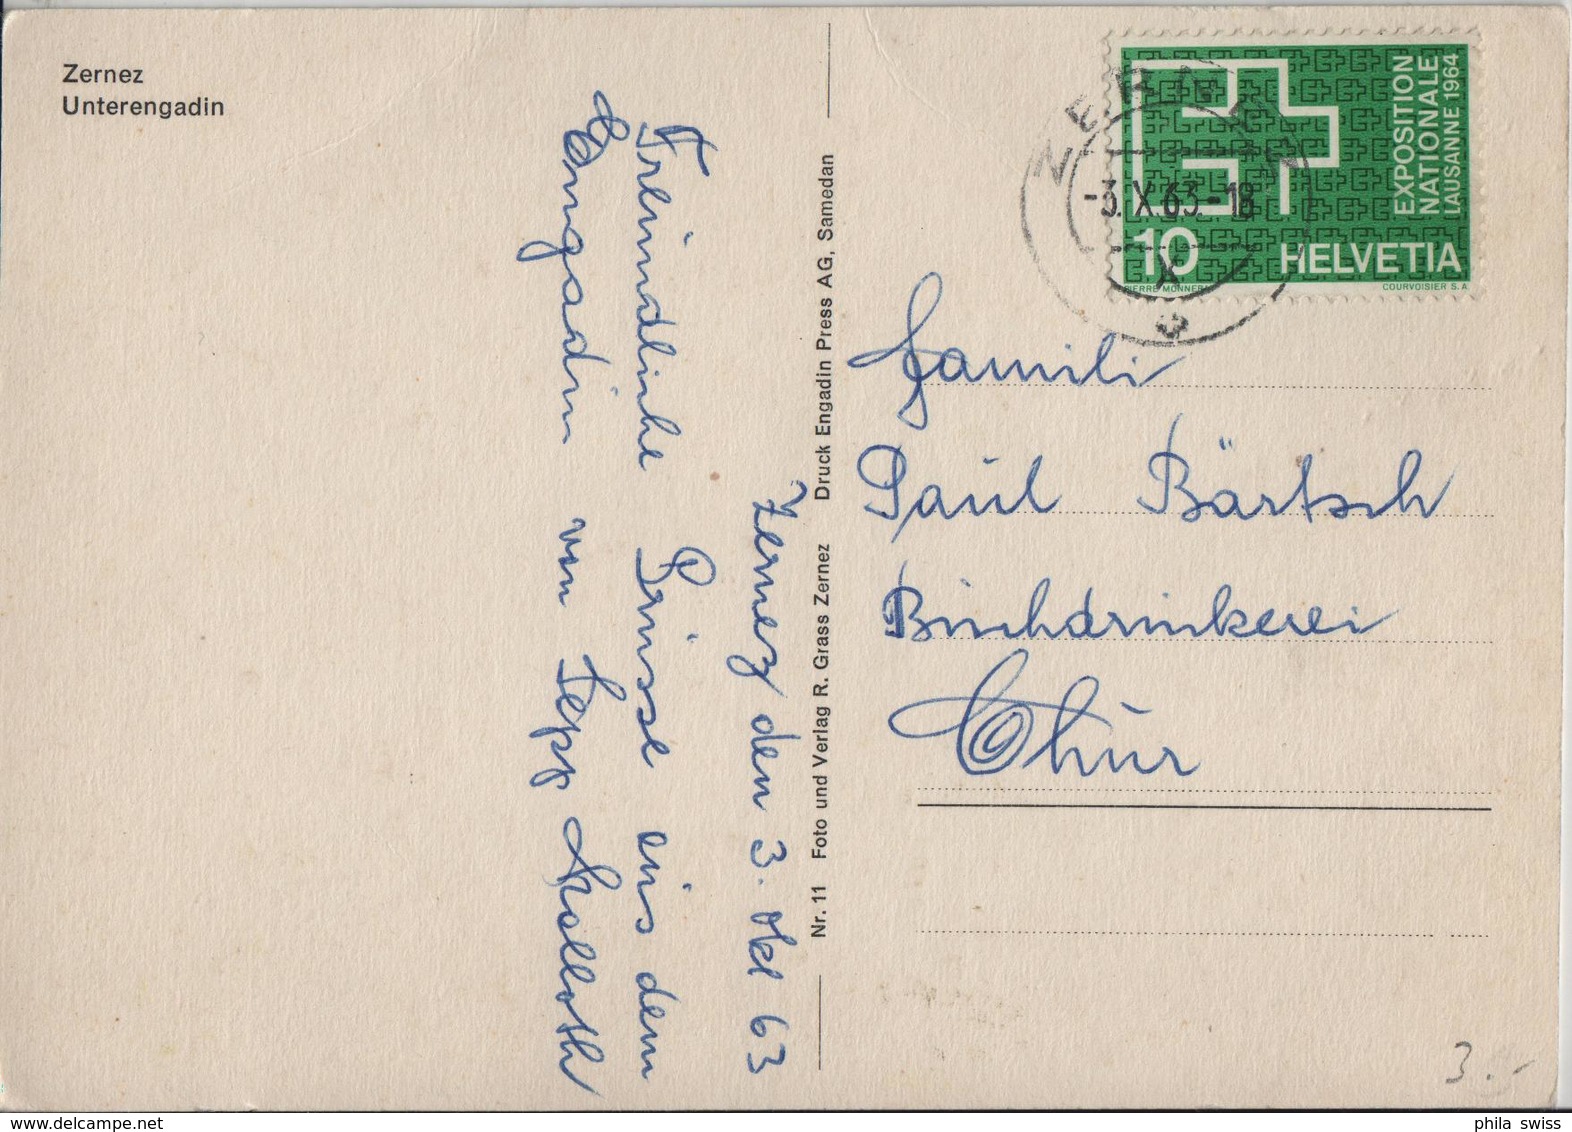 Zernez
Unterengadin
Zernez den 3. Okt 63
Freundliche Grüsse aus dem
Engadin von Sepp
Nr. 11 Foto und Verlag R. Grass Zernez Druck Engadin Press AG, Samedan
ZERNEZ
-3.X.63-18
EXPOSITION
NATIONALE
LAUSANNE 1964
10 HELVETIA
PIERRE MONNERAT COURVOISIER S.A.
Familie
Paul Bärtsch
Buchdruckerei
Chur
3.-
phila swiss